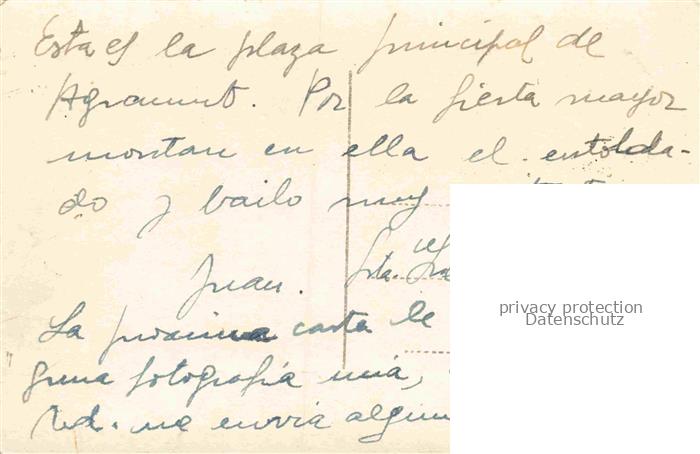 Esta es la plaza principal de
Agramunt. Por la fiesta mayor
montan en ella el entolda-
do y bailo muy
Juan. Srta.
La proxima carta le
fotografía mía,
Vd. me envia algun
privacy protection
Datenschutz